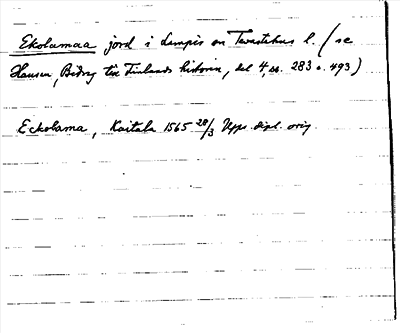 Ekolamaa jord i Lampis sn Tavastehus l. (se
Hausen, Bidrag till Finlands historia, del 4, ss. 283 o. 493)
Eckolama, Kaitala 1565 28/3 Upps. dipl. orig.